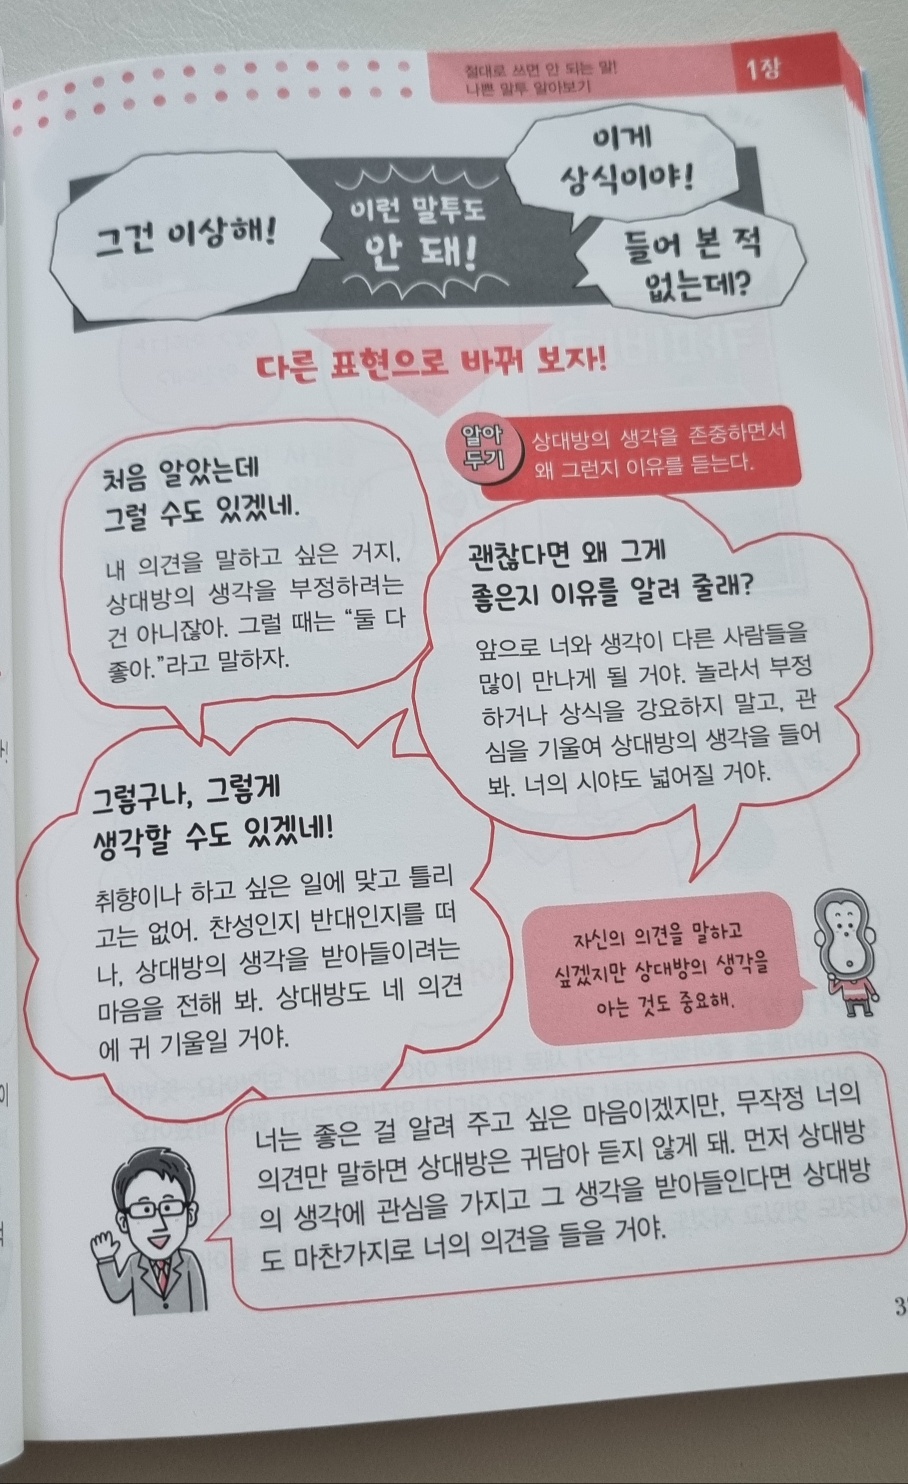 절대로 쓰면 안 되는 말!
나쁜 말투 알아보기
1장
그건 이상해!
이런 말투도
안 돼!
이게
상식이야!
들어 본 적
없는데?
다른 표현으로 바꿔 보자!
알아
두기
상대방의 생각을 존중하면서
왜 그런지 이유를 듣는다.
처음 알았는데
그럴 수도 있겠네.
내 의견을 말하고 싶은 거지,
상대방의 생각을 부정하려는
건 아니잖아. 그럴 때는 “둘 다
좋아.”라고 말하자.
괜찮다면 왜 그게
좋은지 이유를 알려 줄래?
앞으로 너와 생각이 다른 사람들을
많이 만나게 될 거야. 놀라서 부정
하거나 상식을 강요하지 말고, 관
심을 기울여 상대방의 생각을 들어
봐. 너의 시야도 넓어질 거야.
그렇구나, 그렇게
생각할 수도 있겠네!
취향이나 하고 싶은 일에 맞고 틀리
고는 없어. 찬성인지 반대인지를 떠
나, 상대방의 생각을 받아들이려는
마음을 전해 봐. 상대방도 네 의견
에 귀 기울일 거야.
자신의 의견을 말하고
싶겠지만 상대방의 생각을
아는 것도 중요해.
너는 좋은 걸 알려 주고 싶은 마음이겠지만, 무작정 너의
의견만 말하면 상대방은 귀담아 듣지 않게 돼. 먼저 상대방
의 생각에 관심을 가지고 그 생각을 받아들인다면 상대방
도 마찬가지로 너의 의견을 들을 거야.